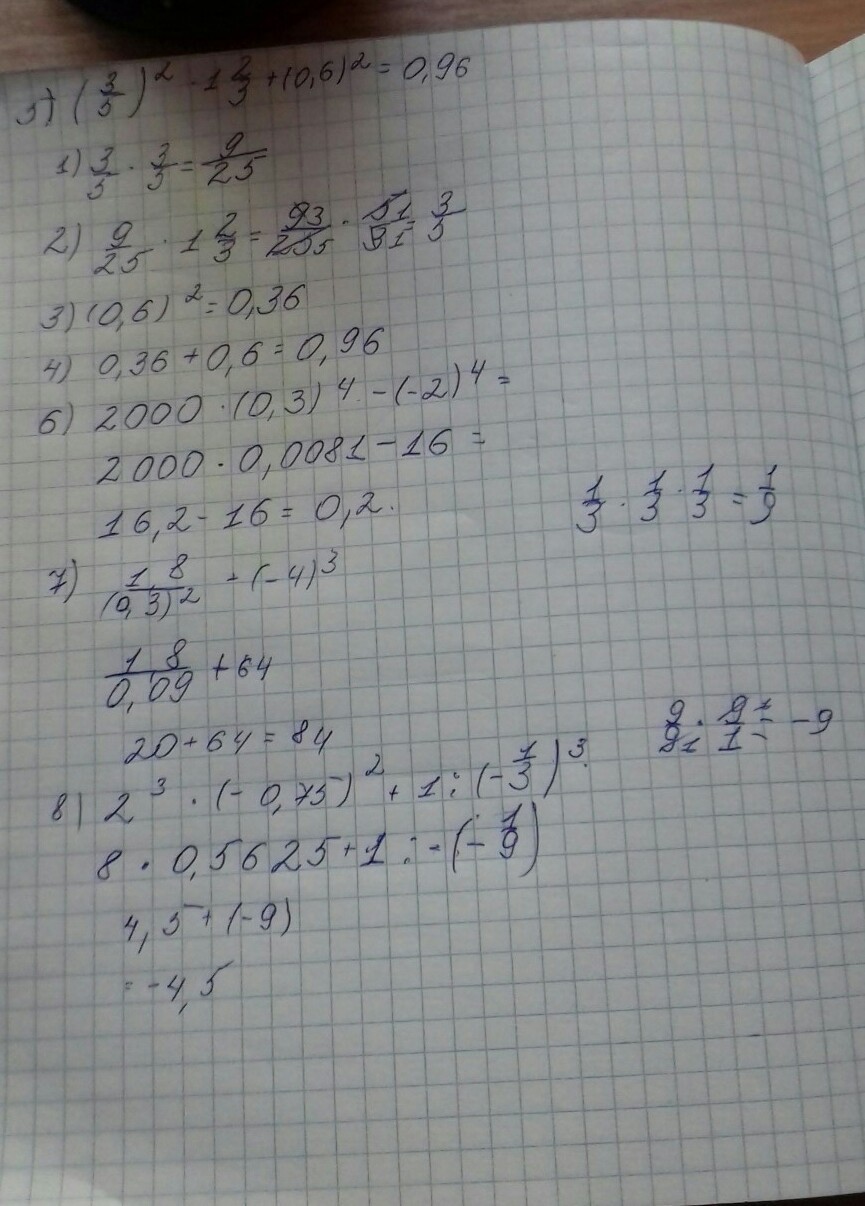 5) (3/5)² · 1 2/3 + (0,6)² = 0,96
1) 3/5 · 3/5 = 9/25
2) 9/25 · 1 2/3 = 93/255 · 51/31 = 3/5
3) (0,6)² = 0,36
4) 0,36 + 0,6 = 0,96
6) 2000 · (0,3)⁴ - (-2)⁴ =
2000 · 0,0081 - 16 =
16,2 - 16 = 0,2.
1/3 · 1/3 · 1/3 = 1/9
7) 1,8/(0,3)² - (-4)³
1,8/0,09 + 64
20 + 64 = 84
8) 2³ · (-0,75)² + 1 : (-1/3)³
8 · 0,5625 + 1 : -(-1/9)
4,5 + (-9)
= -4,5